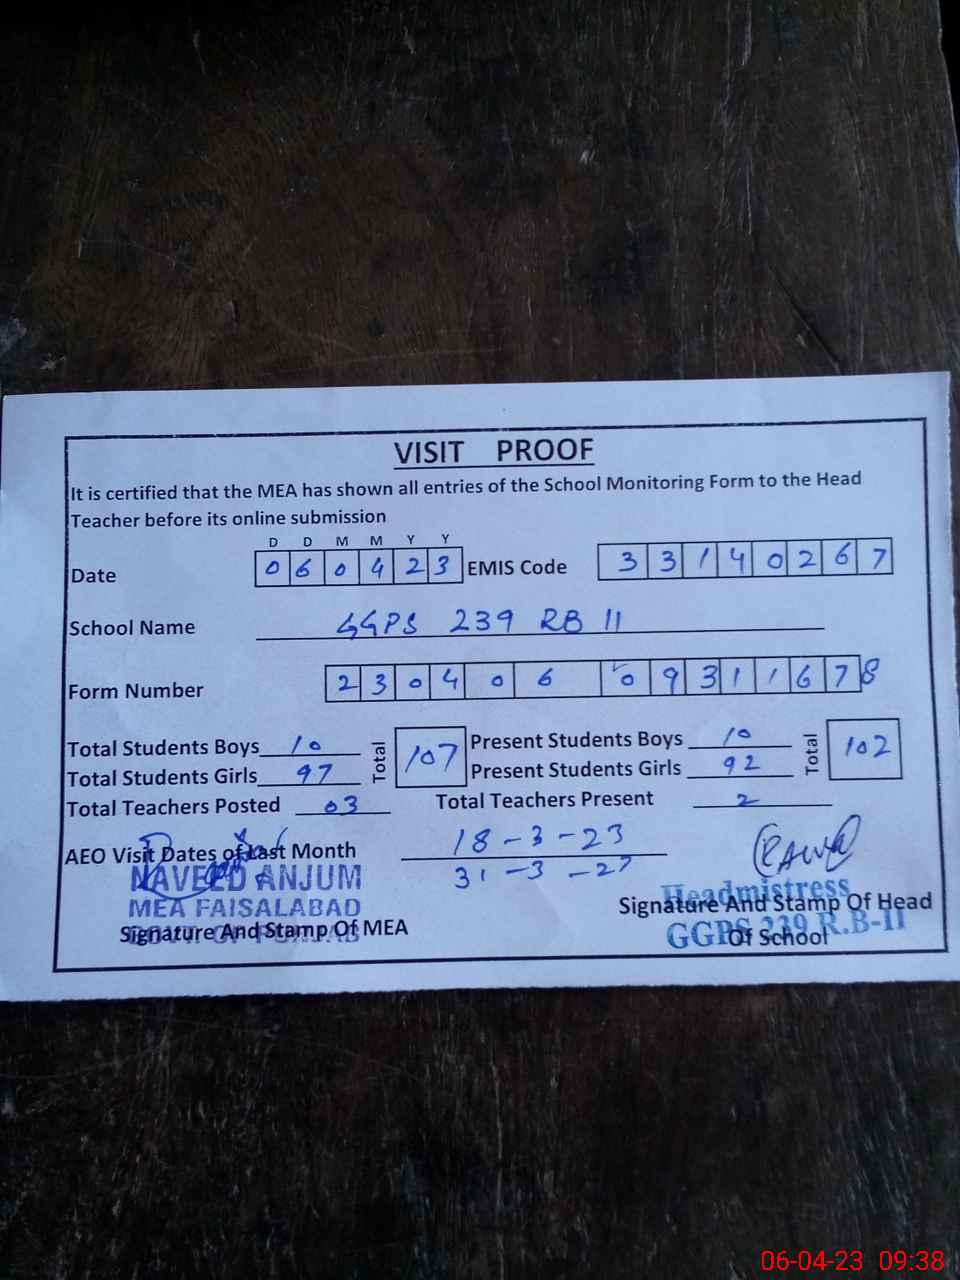 VISIT PROOF
It is certified that the MEA has shown all entries of the School Monitoring Form to the Head
Teacher before its online submission
D D M M Y Y
Date 0 6 0 4 2 3 EMIS Code 3 3 1 4 0 2 6 7
School Name GGPS 239 RB II
Form Number 2 3 0 4 0 6 0 9 3 1 1 6 7 8
Total Students Boys 10 Total 107 Present Students Boys 10 Total 102
Total Students Girls 97 Present Students Girls 92
Total Teachers Posted 03 Total Teachers Present 2
AEO Visit Dates of Last Month 18-3-23
31-3-23
NAVEED ANJUM
MEA FAISALABAD
GOVT. OF PUNJAB
Signature And Stamp Of MEA
Headmistress
Signature And Stamp Of Head
GGPS 239 R.B-II
Of School
06-04-23 09:38